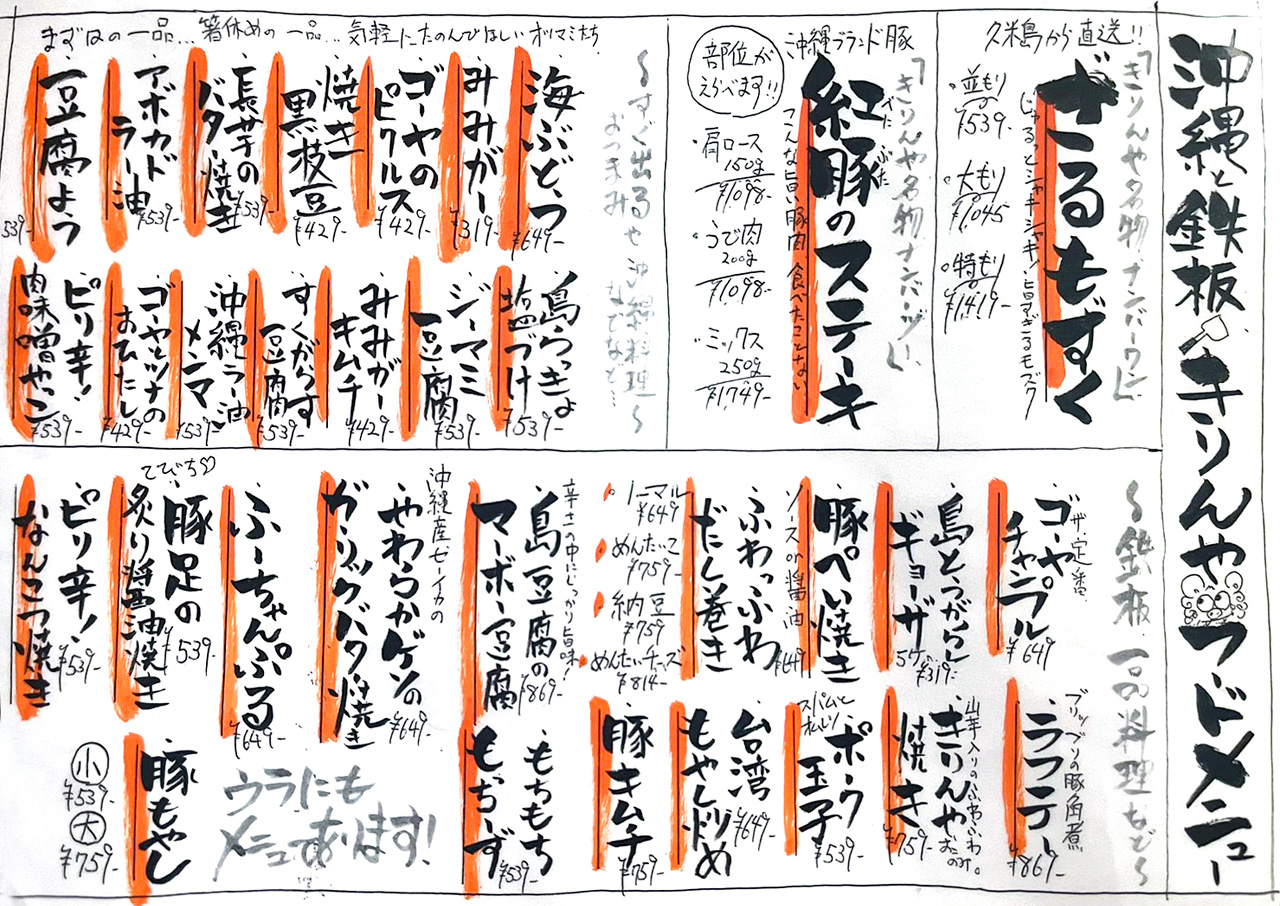 沖縄と鉄板 きりんや フードメニュー
久米島から直送!!
「きりんや名物ナンバーワン」
ざるもずく
じゅるっとシャキシャキ!旨すぎるモズク
・並もり
¥539-
・大もり
¥1,045
・特もり
¥1,419-
沖縄ブランド豚
「きりんや名物ナンバーツー」
紅豚のステーキ
べに ぶた
こんな旨い豚肉 食べたことない
部位が
えらべます!!
・肩ロース
150g
¥1,098-
・うで肉
200g
¥1,098-
・ミックス
250g
¥1,749-
まずはの一品…箸休めの一品…気軽にたのんでほしいオツマミたち
〜すぐ出るや沖縄料理〜
おつまみ などなど…
・海ぶどう
¥649-
・みみがー
¥319-
・ゴーヤの
ピクルス
¥429-
・焼き
黒枝豆
¥429-
・長芋の
バター焼き
¥539-
・アボカド
ラー油
¥539-
・豆腐よう
539-
・島らっきょ
塩づけ
¥539-
・ジーマミ
豆腐
¥539-
・みみがー
キムチ
¥429-
・すくがらす
豆腐
¥539-
・沖縄ラー油
メンマ
¥539-
・ゴーヤツナの
おひたし
¥429-
・ピリ辛!
肉味噌やっこ
¥539-
〜鉄板 一品料理など〜
ザ・定番
・ゴーヤ
チャンプル
¥649
・島とうがらし
ギョーザ
5ケ ¥319-
・豚ぺい焼き
ソース or 醤油
¥649
・ふわっふわ
だし巻き
・ノーマル
¥649
・めんたいこ
¥759-
・納豆
¥759
・めんたいチーズ
¥814-
辛さの中にしっかり旨味!
・島豆腐の
マーボー豆腐
¥869-
沖縄産セーイカの
・やわらかゲソの
ガーリックバター焼き
¥649-
・ふーちゃんぷる
¥649-
てびち♡
・豚足の
炙り醤油焼き
¥539-
・ピリ辛!
なんこつ焼き
¥539-
プリップリの豚角煮
・ラフテー
¥869-
山芋入りのふわふわ
おこのみ。
・きりんや
焼き
¥759-
スパムと
・ポーク
玉子
¥539-
・台湾
もやし炒め
¥649-
・豚キムチ
¥759-
・もちもち
もっちーず
¥539-
ウラにも
メニューあります!
・豚もやし
小
¥539-
大
¥759-